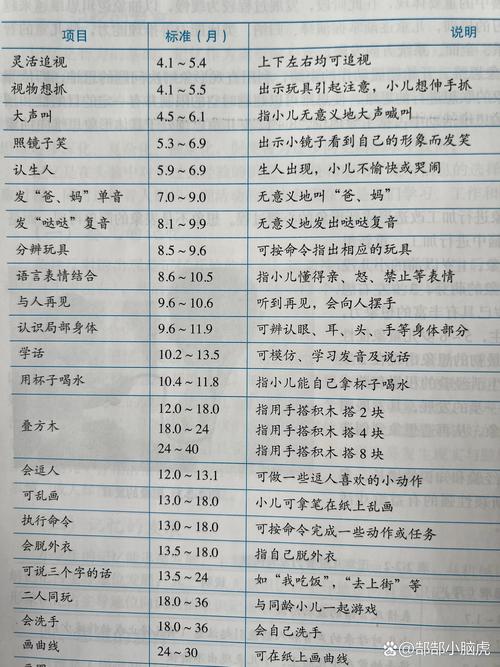 项目 标准（月） 说明
灵活追视 4.1～5.4 上下左右均可追视
视物想抓 4.1～5.5 出示玩具引起注意，小儿想伸手抓
大声叫 4.5～6.1 指小儿无意义地大声喊叫
照镜子笑 5.3～6.9 出示小镜子看到自己的形象而发笑
认生人 5.9～6.9 生人出现，小儿不愉快或哭闹
发“爸、妈”单音 7.0～9.0 无意义地叫“爸、妈”
发“哒哒”复音 8.1～9.9 无意义地发出哒哒复音
分辨玩具 8.5～9.6 可按命令指出相应的玩具
语言表情结合 8.6～10.5 指小儿懂得亲、怒、禁止等表情
与人再见 9.6～10.6 听到再见，会向人摆手
认识局部身体 9.6～11.9 可辨认眼、耳、头、手等身体部分
学话 10.2～13.5 可模仿、学习发音及说话
用杯子喝水 10.4～11.8 指小儿能自己拿杯子喝水
12.0～18.0 指用手搭积木搭2块
叠方木 18.0～24 指用手搭积木搭4块
24～40 指用手搭积木搭8块
会逗人 12.0～13.1 可做一些逗人喜欢的小动作
可乱画 13.0～18.0 小儿可拿笔在纸上乱画
执行命令 13.0～18.0 可按命令完成一些动作或任务
会脱外衣 13.5～18.0 指自己脱外衣
可说三个字的话 13.5～24 如“我吃饭”，“去上街”等
二人同玩 18.0～36 与同龄小儿一起游戏
会洗手 18.0～36 会自己洗手
画曲线 24～30 可在纸上画曲线
@郜郜小脑虎